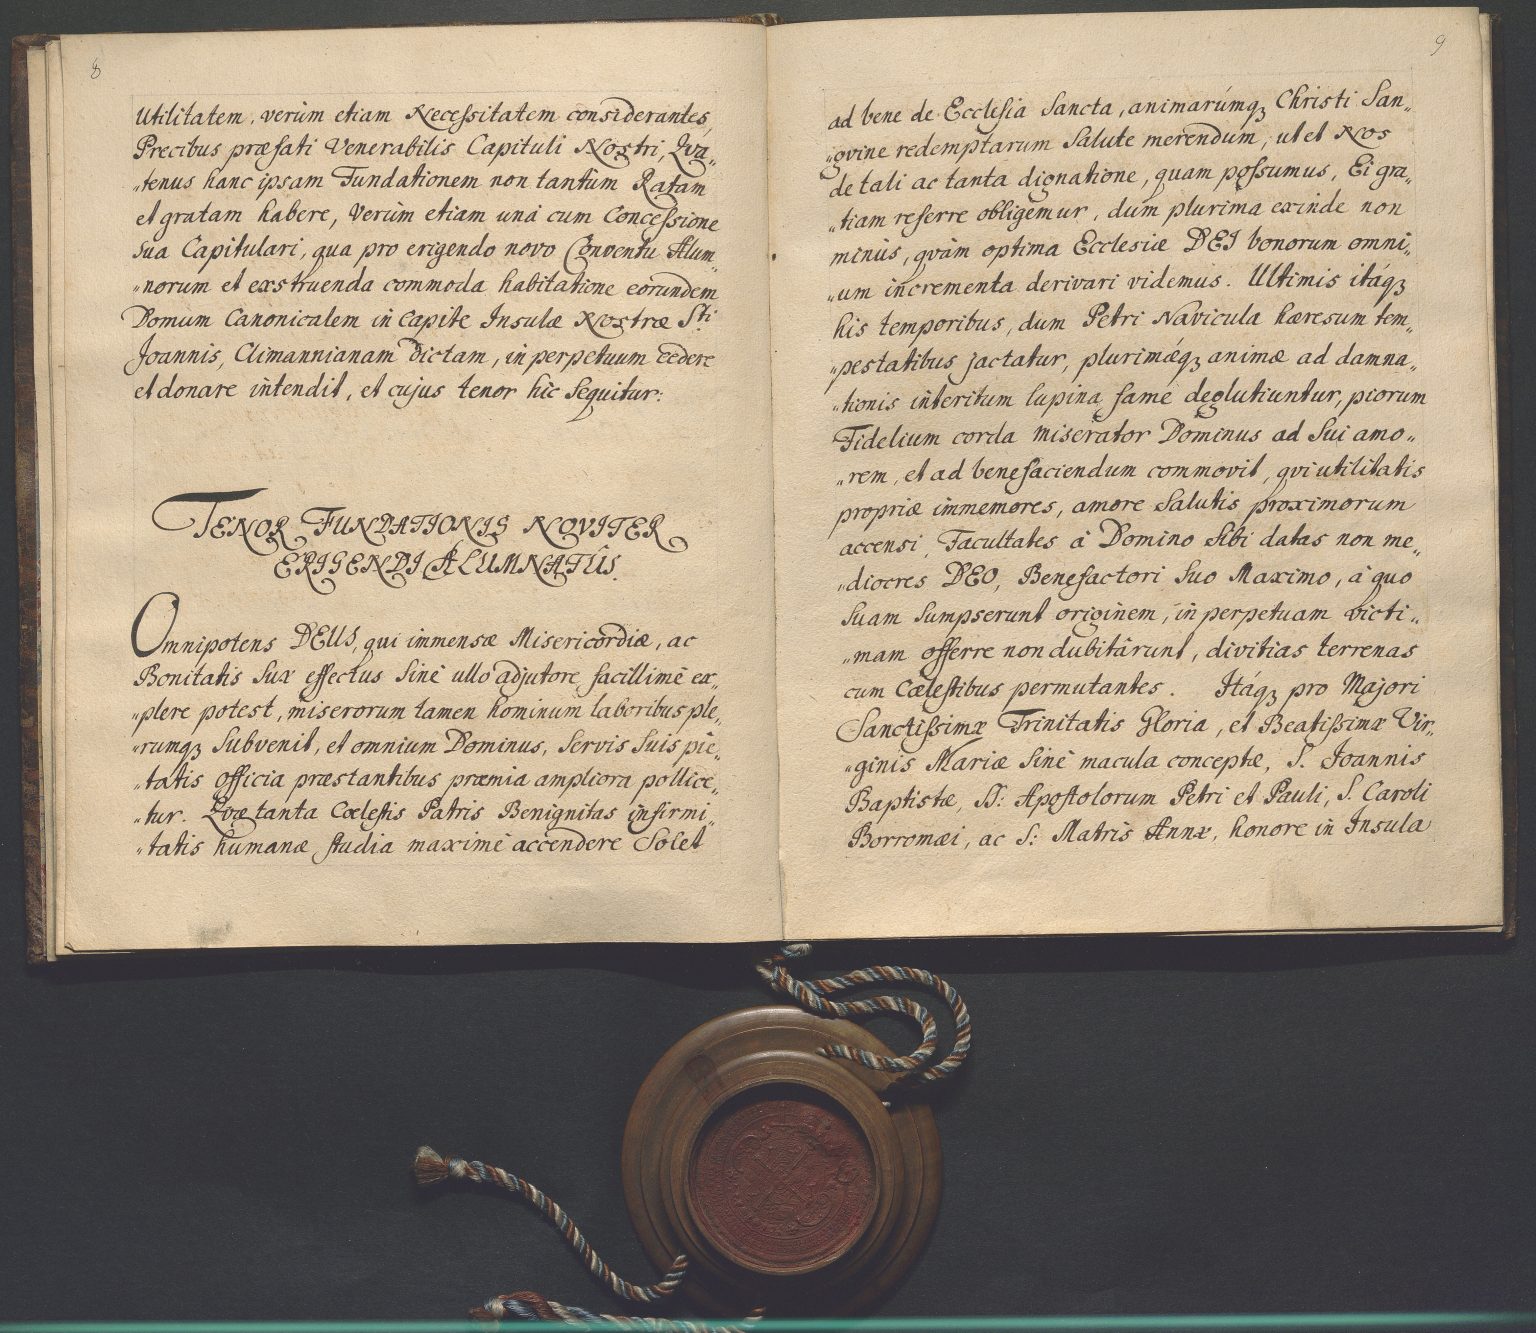 8
Utilitatem, verùm etiam Necessitatem considerantes,
Precibus præfati Venerabilis Capituli Nostri, Qva„
„tenus hanc ipsam Fundationem non tantùm Ratam
et gratam habere, Verùm etiam unà cum Concessione
sua Capitulari, qua pro erigendo novo Conventu Alum„
„norum et exstruenda commoda habitatione eorundem
Domum Canonicalem in Capite Insulæ Nostræ Sti
Joannis, Climannianam dictam, in perpetuum cedere
et donare intendit, et cujus tenor hic sequitur:
TENOR FUNDATIONIS NOVITER
ERIGENDI ALUMNATÛS.
Omnipotens DEUS, qui immensæ Misericordiæ, ac
Bonitatis suæ effectus sinè ullo adjutore facillimè ex„
„plere potest, miserorum tamen hominum laboribus ple„
„rumqꝫ subvenit, et omnium Dominus, servis suis pie„
„tatis officia præstantibus præmia ampliora pollice„
„tur. Qvæ tanta Cœlestis Patris Benignitas infirmi„
„tatis humanæ studia maximè accendere solet
9
ad bene de Ecclesia Sancta, animarúmqꝫ Christi San„
„gvine redemptarum salute merendum, ut et Nos
de tali ac tanta dignatione, quam possumus, Ei gra„
„tiam referre obligemur, dum plurima exinde non
minùs, qvàm optima Ecclesiæ DEI bonorum omni„
„um incrementa derivari videmus. Ultimis itáqꝫ
his temporibus, dum Petri Navicula hæresum tem„
„pestatibus jactatur, plurimǽqꝫ animæ ad damna„
„tionis interitum lupina fame deglutiuntur, piorum
Fidelium corda miserator Dominus ad sui amo„
„rem, et ad benefaciendum commovit, qvi utilitatis
propriæ immemores, amore salutis proximorum
accensi, Facultates à Domino sibi datas non me„
„diocres DEO, Benefactori suo Maximo, à quo
suam sumpserunt originem, in perpetuam victi„
„mam offerre non dubitârunt, divitias terrenas
cum Cœlestibus permutantes. Itáqꝫ pro Majori
Sanctissimæ Trinitatis Gloria, et Beatissimæ Vir„
„ginis Mariæ sinè macula conceptæ, S. Joannis
Baptistæ, SS: Apostolorum Petri et Pauli, S. Caroli
Borromæi, ac S: Matris Annæ, honore in Insula